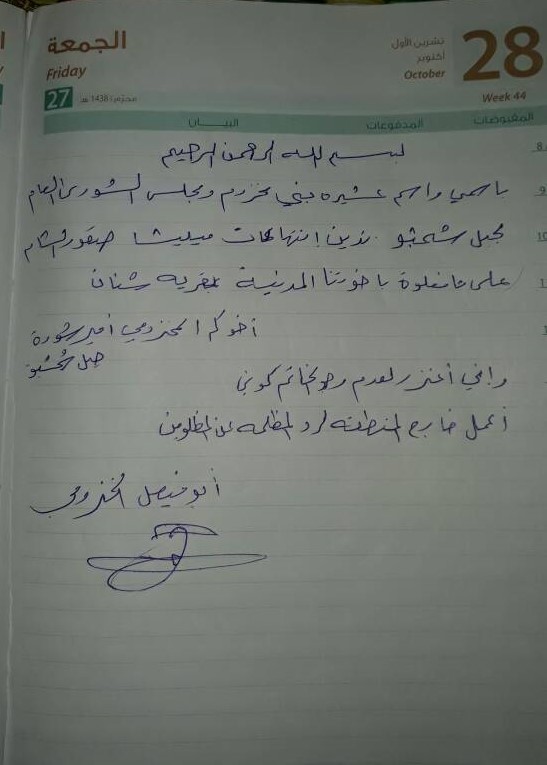 الجمعة
Friday
27
محرم 1438 هـ
تشرين الأول
أكتوبر
October
28
Week 44
البيـــــان
المدفوعات
المقبوضات
بسم الله الرحمن الرحيم
باسمي واسم عشيره بني مخزوم ومجلس الشورى العام
بجبل شحشبو ندين إنتهاكات ميليشا صقور الشام
على ما فعلوة باخوتنا المدنية بقريه شنان
أخوكم المخزومي أمير شورة
جبل شحشبو
واني أعتزر لعدم وجود الخاتم كوني
أعمل خارج المنطقة لرد المظلمه عن المظلومين
أبو فيصل المخزومي